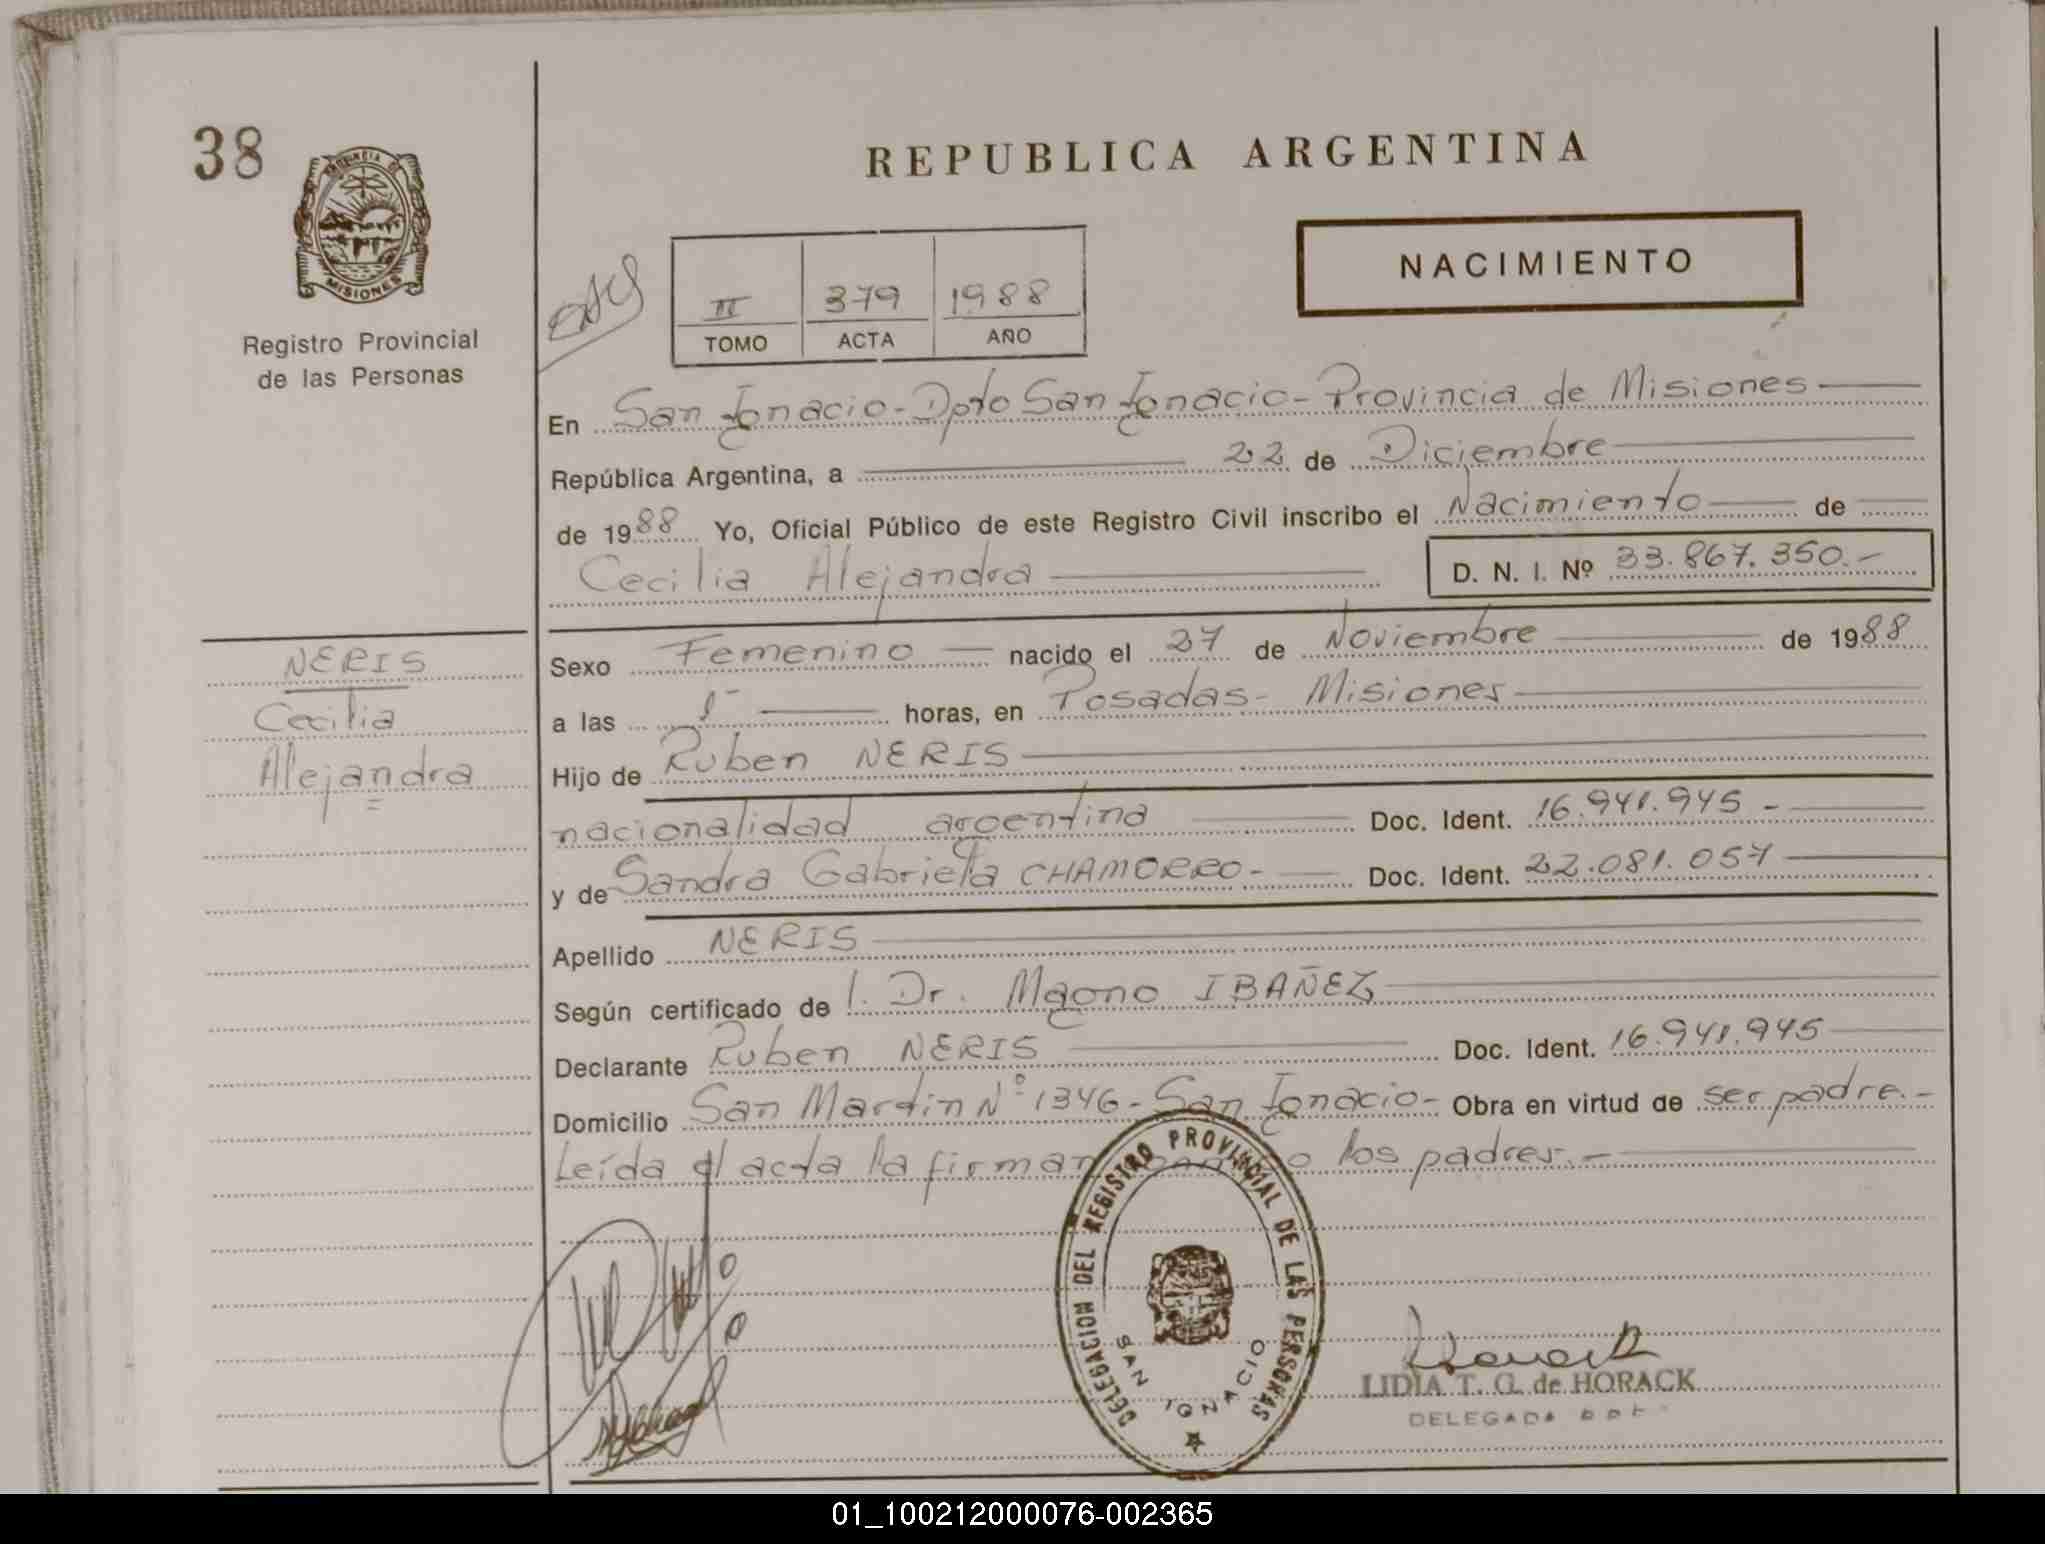 38
PROVINCIA DE
MISIONES
Registro Provincial
de las Personas
REPUBLICA ARGENTINA
NACIMIENTO
II 379 1988
TOMO ACTA AÑO
En San Ignacio - Dpto San Ignacio - Provincia de Misiones
República Argentina, a 22 de Diciembre
de 1988 Yo, Oficial Público de este Registro Civil inscribo el Nacimiento de
Cecilia Alejandra D. N. I. Nº 33.867.350.-
NERIS
Cecilia
Alejandra
Sexo Femenino nacido el 27 de Noviembre de 1988
a las 1 horas, en Posadas - Misiones
Hijo de Ruben NERIS
nacionalidad argentina Doc. Ident. 16.941.945 -
y de Sandra Gabriela CHAMORRO - Doc. Ident. 22.081.057
Apellido NERIS
Según certificado de l. Dr. Magno IBAÑEZ
Declarante Ruben NERIS Doc. Ident. 16.941.945
Domicilio San Martin Nº 1346 - San Ignacio - Obra en virtud de ser padre.-
Leída el acta la firman los padres.-
DELEGACION DEL REGISTRO PROVINCIAL DE LAS PERSONAS
SAN IGNACIO
LIDIA T. G. de HORACK
DELEGADA
01_100212000076-002365